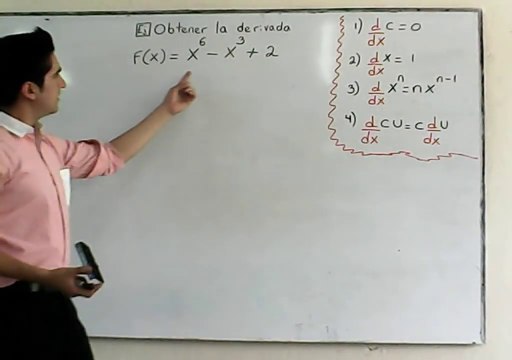 Ej Obtener la derivada
F(x) = x⁶ - x³ + 2
1) d/dx c = 0
2) d/dx x = 1
3) d/dx xⁿ = n xⁿ⁻¹
4) d/dx cu = c d/dx u